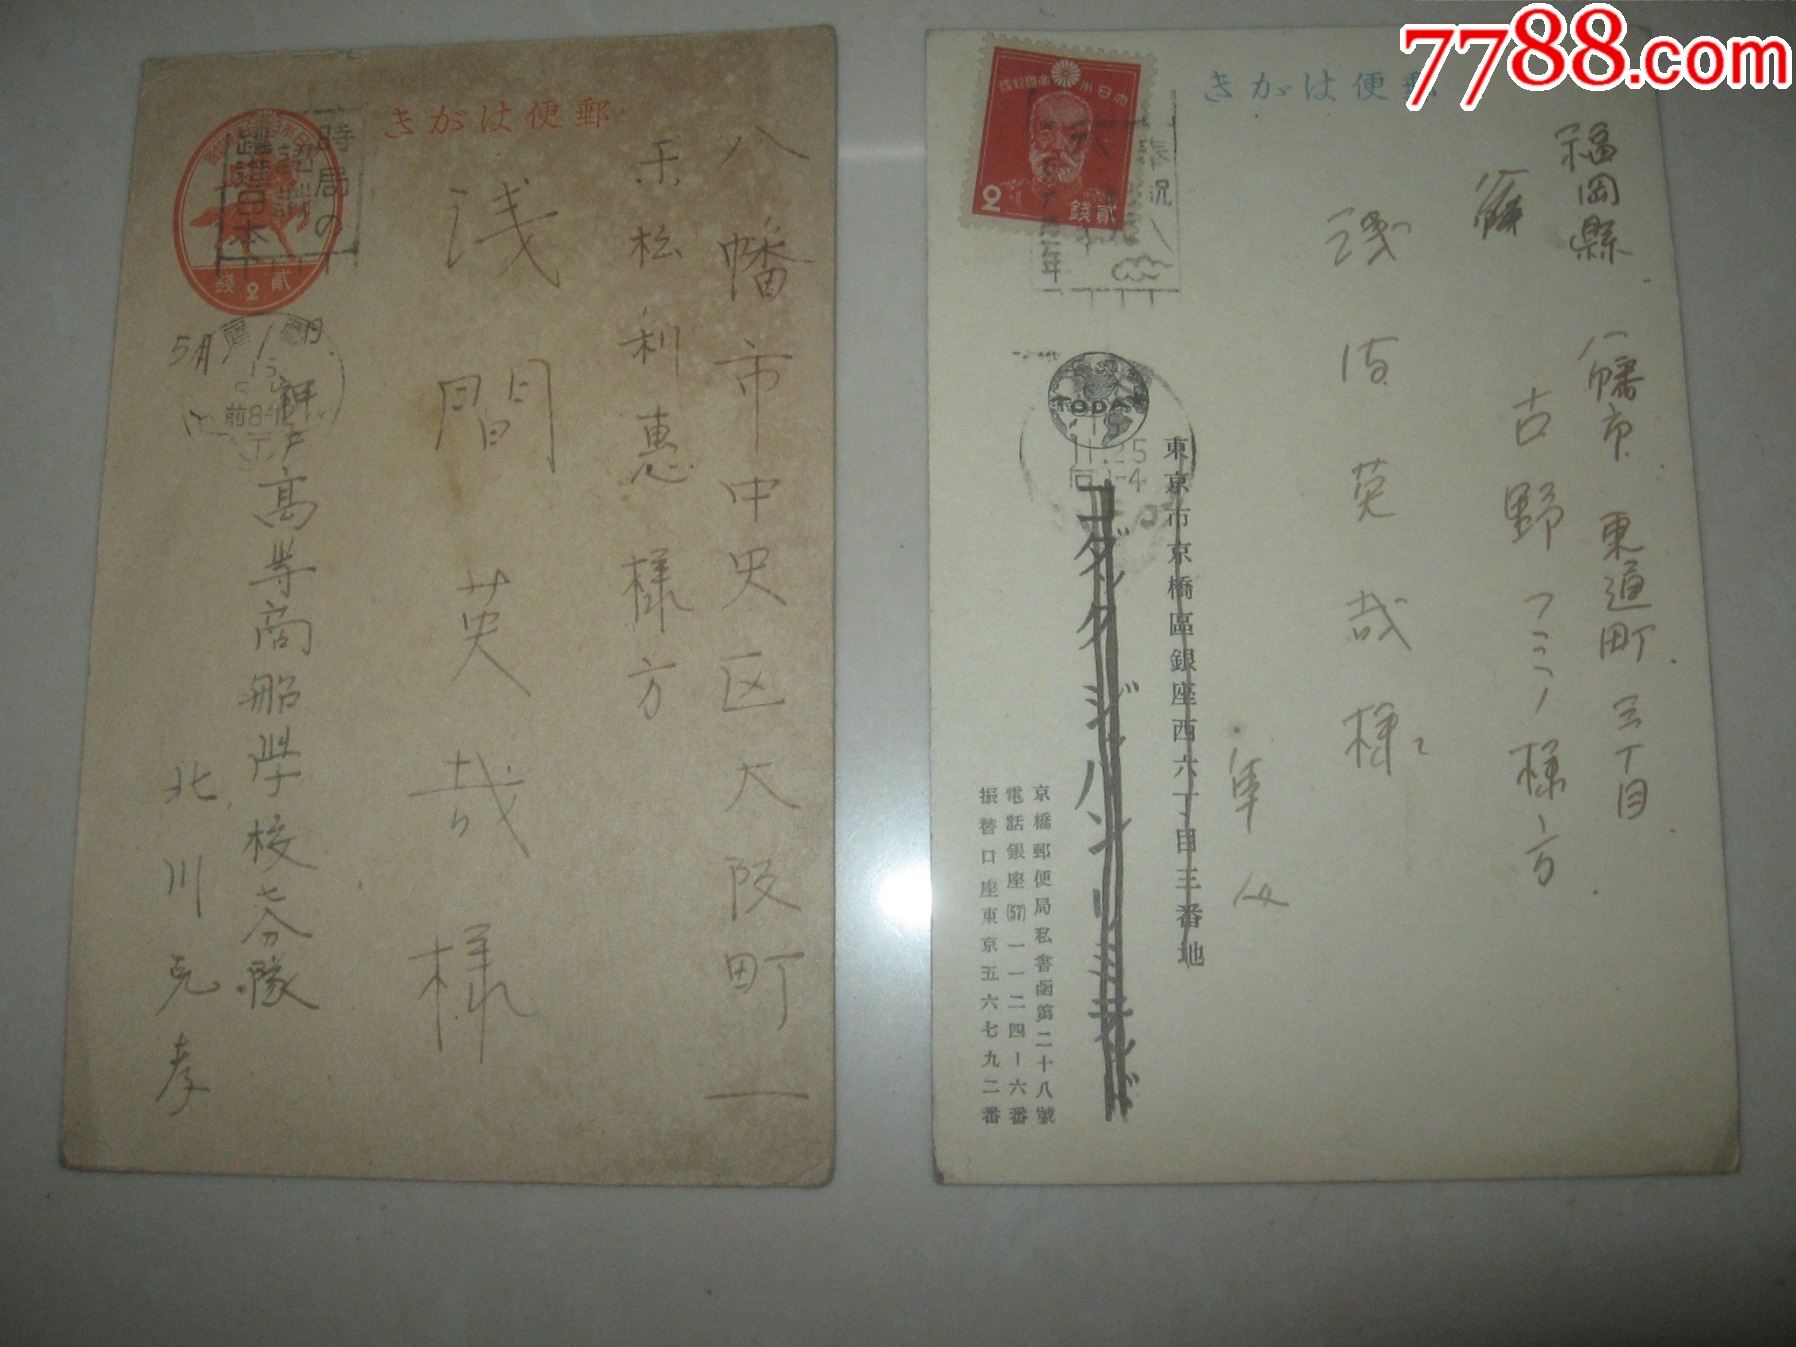 7788.com
きがは便郵
時局の
認識
躍進日本
貳
錢
2
5月11日
前8-
八幡市中央区大阪町一
末松利惠様方
浅間英哉様
神戸高等商船学校七分隊
北川克孝
きがは便郵
2
貳
錢
奉祝
TODA
11.25
福岡縣八幡市東通町三丁目
古野フミノ様方
浅間英哉様
東京市京橋區銀座西六丁目三番地
コダックジャパンリミテッド
京橋郵便局私書函第二十八號
電話銀座(57)一一二四ー六番
振替口座東京五六七九二番